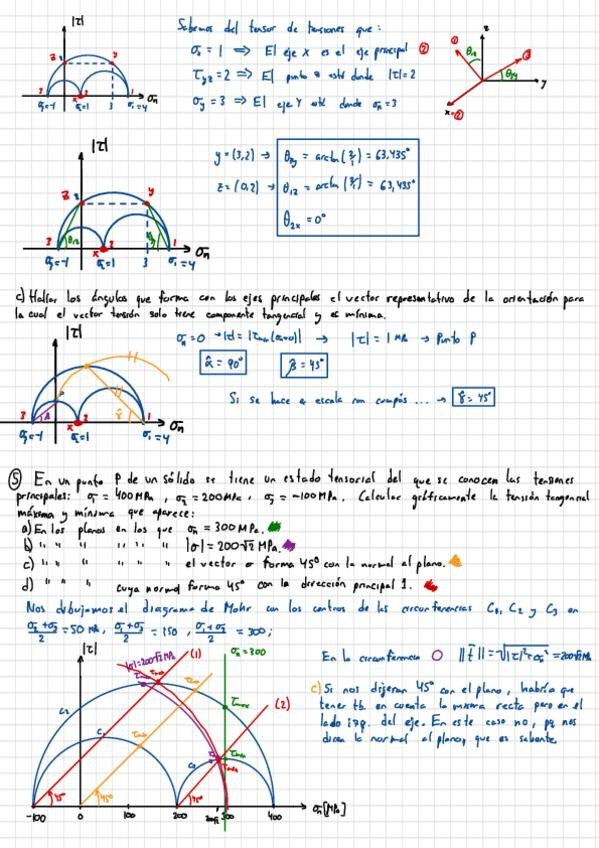 |τ|
Sabemos del tensor de tensiones que:
σx = 1 ⟹ El eje x es el eje principal ②
τyz = 2 ⟹ El punto está donde |τ| = 2
σy = 3 ⟹ El eje Y está donde σn = 3
z
y
x=②
①
③
z 2
y
3
σ3=-1
σ2=1
3
1
σ1=4
σn
|τ|
y = (3,2) → θ3y = arctan (2/1) = 63,435°
z = (0,2) → θ1z = arctan (2/1) = 63,435°
θ2x = 0°
z 2
y
3
x
2
1
σn
σ3=-1
σ2=1
3
σ1=4
c) Hallar los ángulos que forma con los ejes principales el vector representativo de la orientación para
la cual el vector tensión solo tiene componente tangencial y es mínima.
|τ|
σn=0 → |τ| = |τmin (σn=0)| → |τ| = 1 MPa → Punto P
α̂ = 90°
β̂ = 45°
Si se hace a escala con compás ... → γ̂ = 45°
P
3
x
2
1
σn
σ3=-1
σ2=1
σ1=4
⑤ En un punto P de un sólido se tiene un estado tensorial del que se conocen las tensiones
principales: σ1 = 400 MPa , σ2 = 200 MPa , σ3 = -100 MPa . Calcular gráficamente la tensión tangencial
máxima y mínima que aparece:
a) En los planos en los que σn = 300 MPa.
b) " " " " " " |σ| = 200√2 MPa.
c) " " " el vector σ forma 45° con la normal al plano.
d) " " " cuya normal forma 45° con la dirección principal 1.
Nos dibujamos el diagrama de Mohr con los centros de las circunferencias C1, C2 y C3 en
= 50 MPa, = 150 , = 300;
|τ|
|σ|=200√2 MPa
(1)
σn = 300
τmax
(2)
C2
C1
C3
τmin
45°
45°
45°
-100
0
100
200
300
400
σn [MPa]
En la circunferencia ||t|| = √|τ|²+σn² = 200√2 MPa
c) Si nos dijeran 45° con el plano, habría que
tener tb en cuenta la misma recta pero en el
lado izq. del eje. En este caso no, pq nos
dicen la normal al plano, que es saliente.